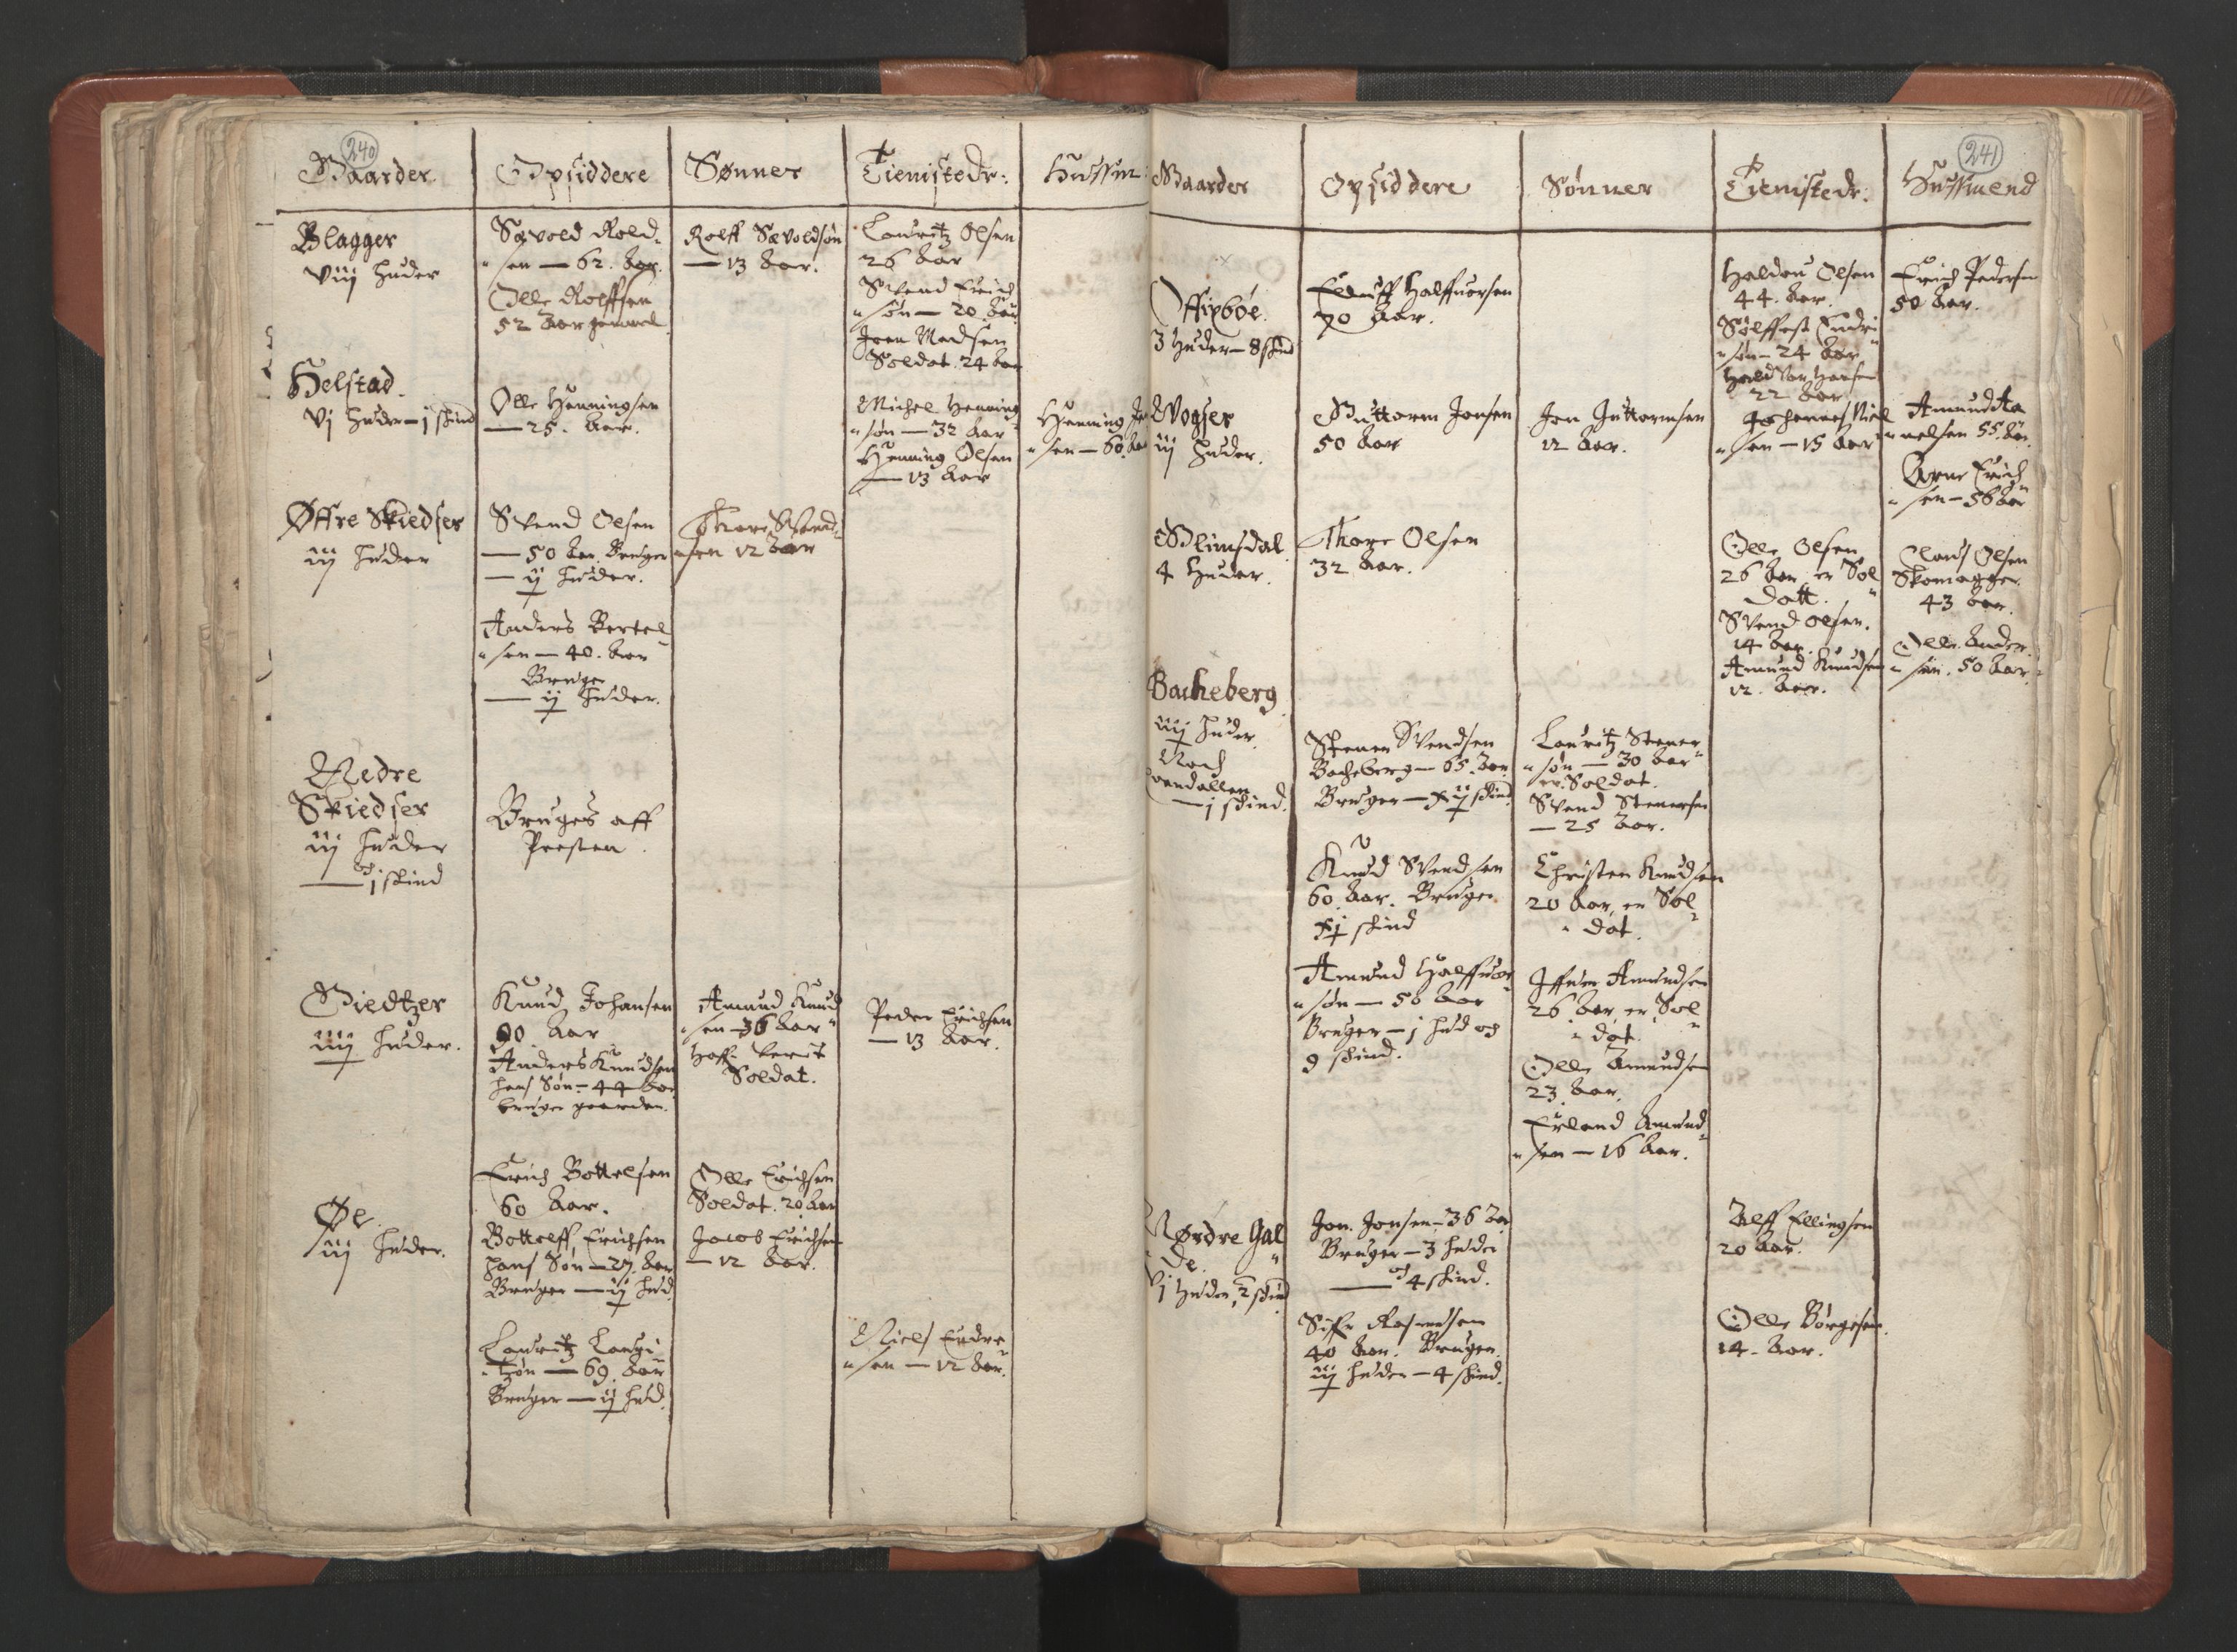 240
Gaarder
Opsiddere
Sønner
Tienistedr:
Hussm
Blagger
viij huder
Sævold Rold
sen — 62. Aar.
Olle Rolffsen
52 Aar gammel
Rolff Sævoldsøn
— 13 Aar.
Lauritz Olsen
26 Aar
Svend Erich
søn — 20 Aar
Joen Madsen
Soldat. 24 Aar
Helstad.
vj huder — j skind
Olle Henningsen
— 25. Aar.
Michel Henning
søn — 32 Aar
Henning Olsen
— 13 Aar
Henning
sen — 60 Aar
Øffre Skiedser
iij huder
Svend Olsen
— 50 Aar. Bruger
— ij huder.
Thore Svend
sen 12 Aar
Anders Bertel
sen — 40. Aar
Bruger
— ij huder.
Nedre
Skiedser
iij huder
— och j skind
Bruges aff
Presten.
Giedtzer
iiij huder.
Knud Johansen
90 Aar
Anders Knudsen
hans Søn — 44 Aar
bruger gaarden.
Amund Knud
sen — 36 Aar
Haff. verit
Soldat.
Peder Erichsen
— 13 Aar.
Øe
iij huder.
Erich Bottelsen
60 Aar.
Bottelff Erichsen
hans Søn — 27. Aar
Bruger — ij hud.
Olle Erichsen
Soldat. 20 Aar
Jacob Erichsen
— 12 Aar.
Lauritz Laugi
tzøn — 69. Aar
Bruger — ij hud.
Niels Endre
sen — 12 Aar.
241
Gaarder
Opsiddere
Sønner
Tienistedr:
Hussmend
Offigbøe.
3 Huder — 8 skind
Halffuorsen
70 Aar.
Haldou Olsen
44. Aar.
Sølffest Endri
søn — 24 Aar
Haldvor Hansen
22 Aar
Erich Pedersen
50 Aar.
Voger
iij huder.
Guttorm Jonsen
50 Aar
Jon Guttormsen
12 Aar.
Johannes Niel
sen — 15 Aar
Amund Aa
nelsen 55 Aar.
Arne Erich
sen — 56 Aar
Glimsdal
4 Huder.
Thore Olsen
32 Aar.
Olle Olsen
26 Aar er Sol
datt.
Svend Olsen.
14 Aar.
Amund Knudsen
12. Aar.
Claus Olsen
Skomagger.
43 Aar.
Olle Ander
søn. 50 Aar.
Bacheberg
iiij huder.
Noch
— j skind.
Stener Svendsen
Bacheberg — 65. Aar
Bruger — xij skind
Lauritz Stener
søn — 30 Aar
er Soldat.
Svend Stenersen
— 25 Aar.
Knud Svendsen
60. Aar. Bruger
xj skind
Christen Knudsen
20 Aar, er Sol
dat.
Amund Halffuor
søn — 50 Aar
Bruger — j hud och
9 skind.
Iffuer Amundsen
26 Aar, er Sol
dat.
Olle Amundsen
23. Aar.
Erland Amund
sen — 16 Aar.
Nørdre Gal
de.
vj huder, 2 skind
Jon Jonsen — 36 Aar
Bruger — 3 huder
— och 4 skind.
Alff Ellingsen
20 Aar.
Siffr Rasmusen
40 Aar. Bruger
iij huder — 4 skind.
Olle Børgesen.
14. Aar.